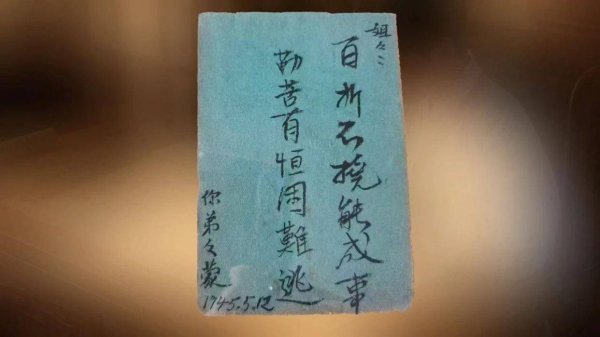 姐々：
百折不挠能成事
勤苦有恒困難逃
你弟々蒙
1945.5.12